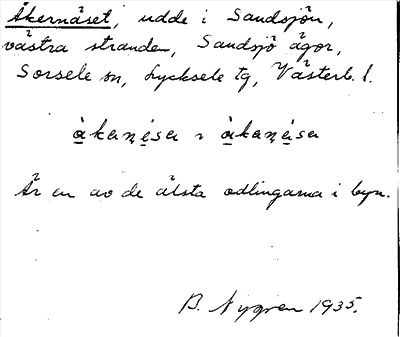 Åkernäset, udde i Sandsjön,
västra stranden, Sandsjö ägor,
Sorsele sn, Lycksele tg, Västerb. l.
Är en av de älsta odlingarna i byn.
B. Nygren 1935.